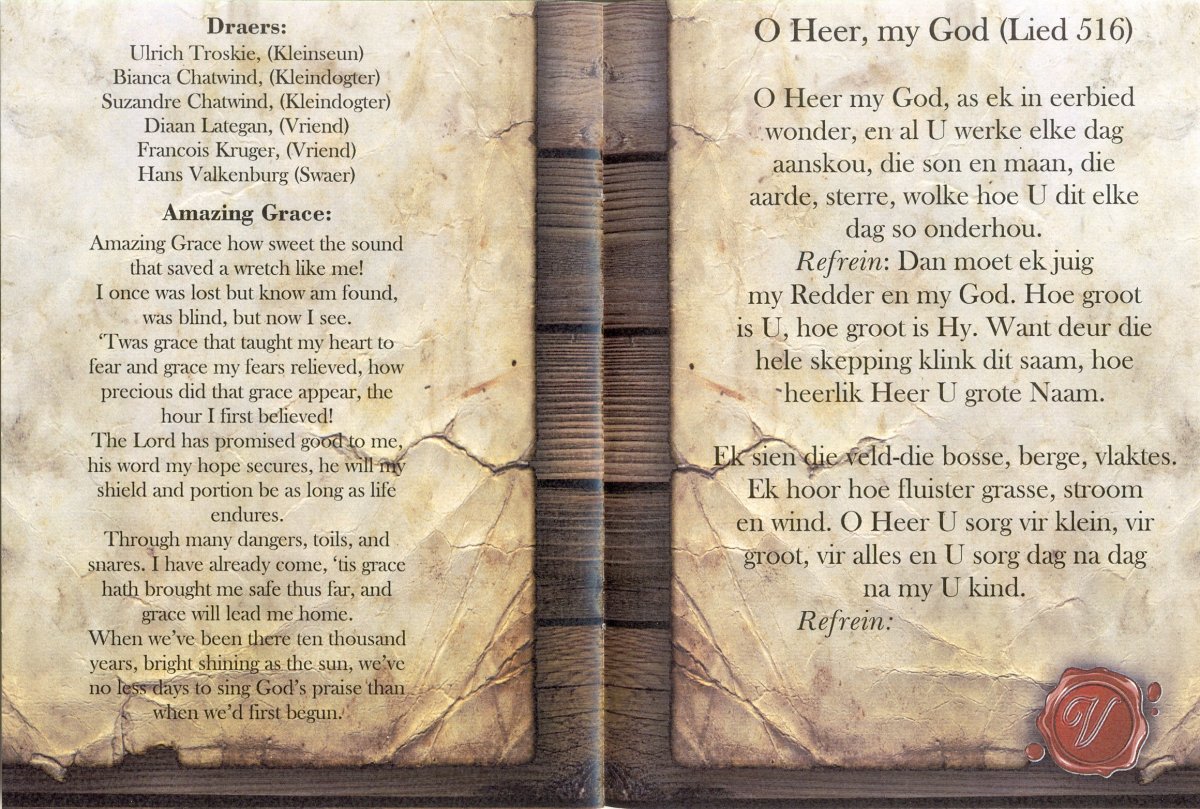 Draers:
Ulrich Troskie, (Kleinseun)
Bianca Chatwind, (Kleindogter)
Suzandre Chatwind, (Kleindogter)
Diaan Lategan, (Vriend)
Francois Kruger, (Vriend)
Hans Valkenburg (Swaer)
Amazing Grace:
Amazing Grace how sweet the sound
that saved a wretch like me!
I once was lost but know am found,
was blind, but now I see.
‘Twas grace that taught my heart to
fear and grace my fears relieved, how
precious did that grace appear, the
hour I first believed!
The Lord has promised good to me,
his word my hope secures, he will my
shield and portion be as long as life
endures.
Through many dangers, toils, and
snares. I have already come, ‘tis grace
hath brought me safe thus far, and
grace will lead me home.
When we’ve been there ten thousand
years, bright shining as the sun, we’ve
no less days to sing God’s praise than
when we’d first begun.
O Heer, my God (Lied 516)
O Heer my God, as ek in eerbied
wonder, en al U werke elke dag
aanskou, die son en maan, die
aarde, sterre, wolke hoe U dit elke
dag so onderhou.
Refrein: Dan moet ek juig
my Redder en my God. Hoe groot
is U, hoe groot is Hy. Want deur die
hele skepping klink dit saam, hoe
heerlik Heer U grote Naam.
Ek sien die veld-die bosse, berge, vlaktes.
Ek hoor hoe fluister grasse, stroom
en wind. O Heer U sorg vir klein, vir
groot, vir alles en U sorg dag na dag
na my U kind.
Refrein:
V